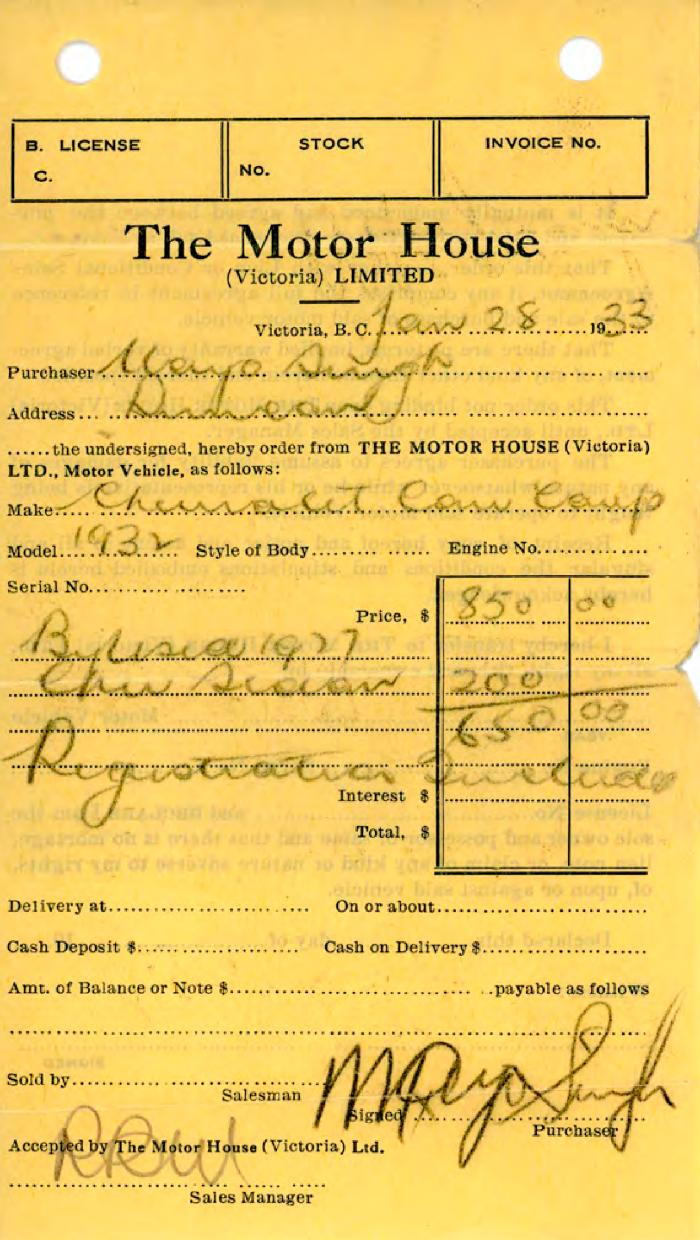 B. LICENSE
C.
STOCK
No.
INVOICE No.
The Motor House
(Victoria) LIMITED
Victoria, B. C. Jan 28 1933
Purchaser Mayo Singh
Address Duncan
......the undersigned, hereby order from THE MOTOR HOUSE (Victoria)
LTD., Motor Vehicle, as follows:
Make Chevrolet Con Coup
Model 1932 Style of Body Engine No.
Serial No.
Price, $ 850 00
By Used 1927
Chev Sedan 200
650 00
Registration Include
Interest $
Total, $
Delivery at On or about
Cash Deposit $ Cash on Delivery $
Amt. of Balance or Note $ payable as follows
Sold by
Salesman
Signed Mayo Singh
Purchaser
Accepted by The Motor House (Victoria) Ltd.
Sales Manager